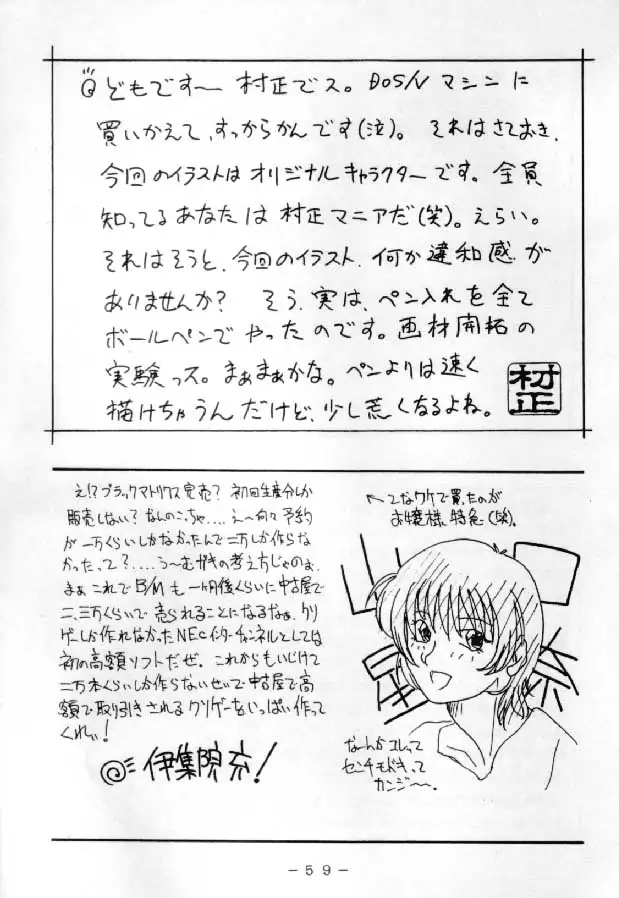 どもです〜 村正でス。DOS/V マシンに
買いかえて、すっからかんです(泣)。 それはさておき、
今回のイラストは オリジナル キャラクターです。全員
知ってるあなたは 村正マニアだ(笑)。えらい。
それはそうと、今回のイラスト、何か違和感が
ありませんか? そう、実は、ペン入れを全て
ボールペンで やったのです。画材開拓の
実験っス。まぁまぁかな。ペンよりは速く
描けちゃうんだけど、少し荒くなるよね。
村正
え!?ブラックマトリクス完売? 初回生産分しか
販売しない? なんのこっちゃ....え〜何々予約
が一万くらいしかなかったんで二万しか作らな
かったって?....う〜むがきの考え方じゃのぉ、
まぁ これで B/M も一ヶ月後くらいに中古屋で
二、三万くらいで 売られることになるなぁ、クソ
ゲーしか作れなかったNECインターチャンネルとしては
初の高額ソフトだぜ。これからもいじけて
二万本くらいしか作らないせいで中古屋で高
額で取り引きされるクソゲーをいっぱい作って
くれぃ!
伊集院 充!
てなワケで買ったのが
お嬢様特急(笑)。
なーんかコレって
センチモドキって
カンジ〜〜。
-59-